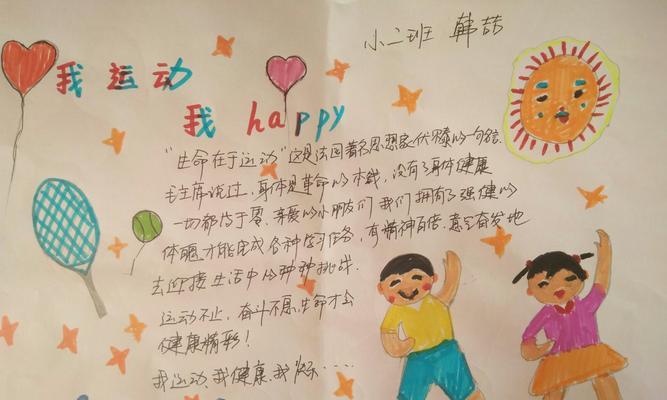 小二班 韩喆
我运动
我 happy
"生命在于运动"这是法国著名思想家伏尔泰的一句名言.
毛主席说过,身体是革命的本钱,没有了身体健康
一切都等于零.亲爱的小朋友们我们拥有了强健的
体魄,才能完成各种学习任务,有精神百倍.意气奋发地
去迎接生活中的种种挑战.
运动不止,奋斗不息,生命才会
健康精彩!
我运动、我健康、我快乐……